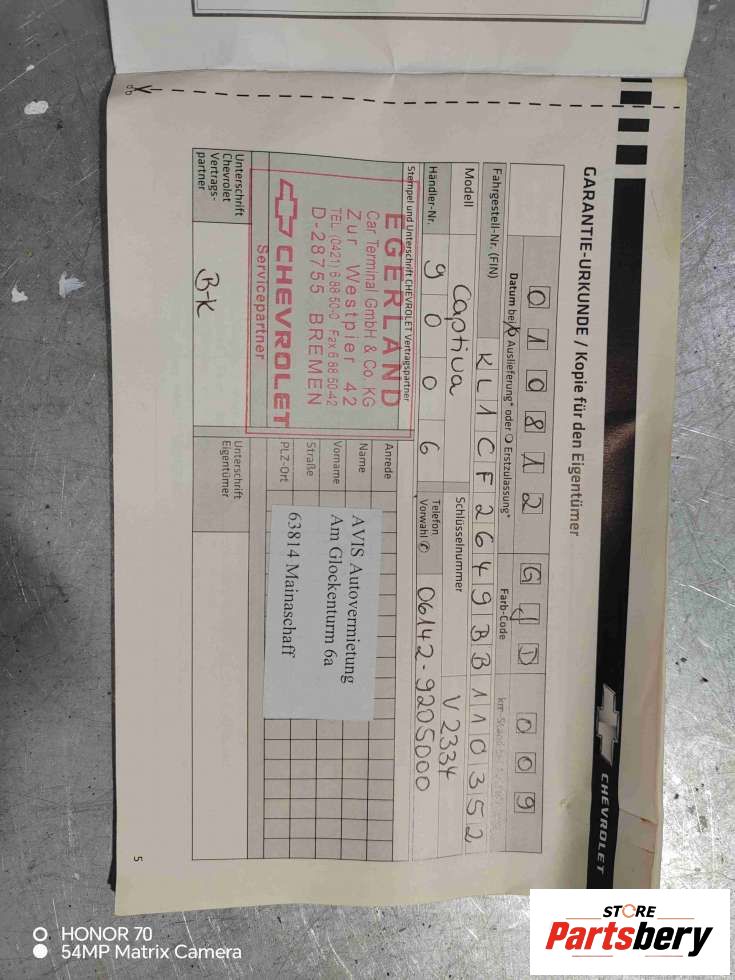 CHEVROLET
GARANTIE-URKUNDE / Kopie für den Eigentümer
010812 GJD 009
Datum bei Auslieferung* oder Erstzulassung* Farb-Code
Fahrgestell-Nr. (FIN) KL1CF2649BB110352
Modell Captiva Schlüsselnummer V2334
Händler-Nr. 9006 Telefon Vorwahl 06142-9205000
Stempel und Unterschrift CHEVROLET Vertragspartner
EGERLAND
Car Terminal GmbH & Co. KG
Zur Westpier 42
TEL. (0421) 6 88 50-0 Fax 6 88 50-42
D-28755 BREMEN
CHEVROLET
Servicepartner
Anrede
Name
Vorname
Straße
PLZ-Ort
AVIS Autovermietung
Am Glockenturm 6a
63814 Mainaschaff
Unterschrift
Chevrolet
Vertrags-
partner
Unterschrift
Eigentümer
5
HONOR 70
54MP Matrix Camera
STORE
Partsbery